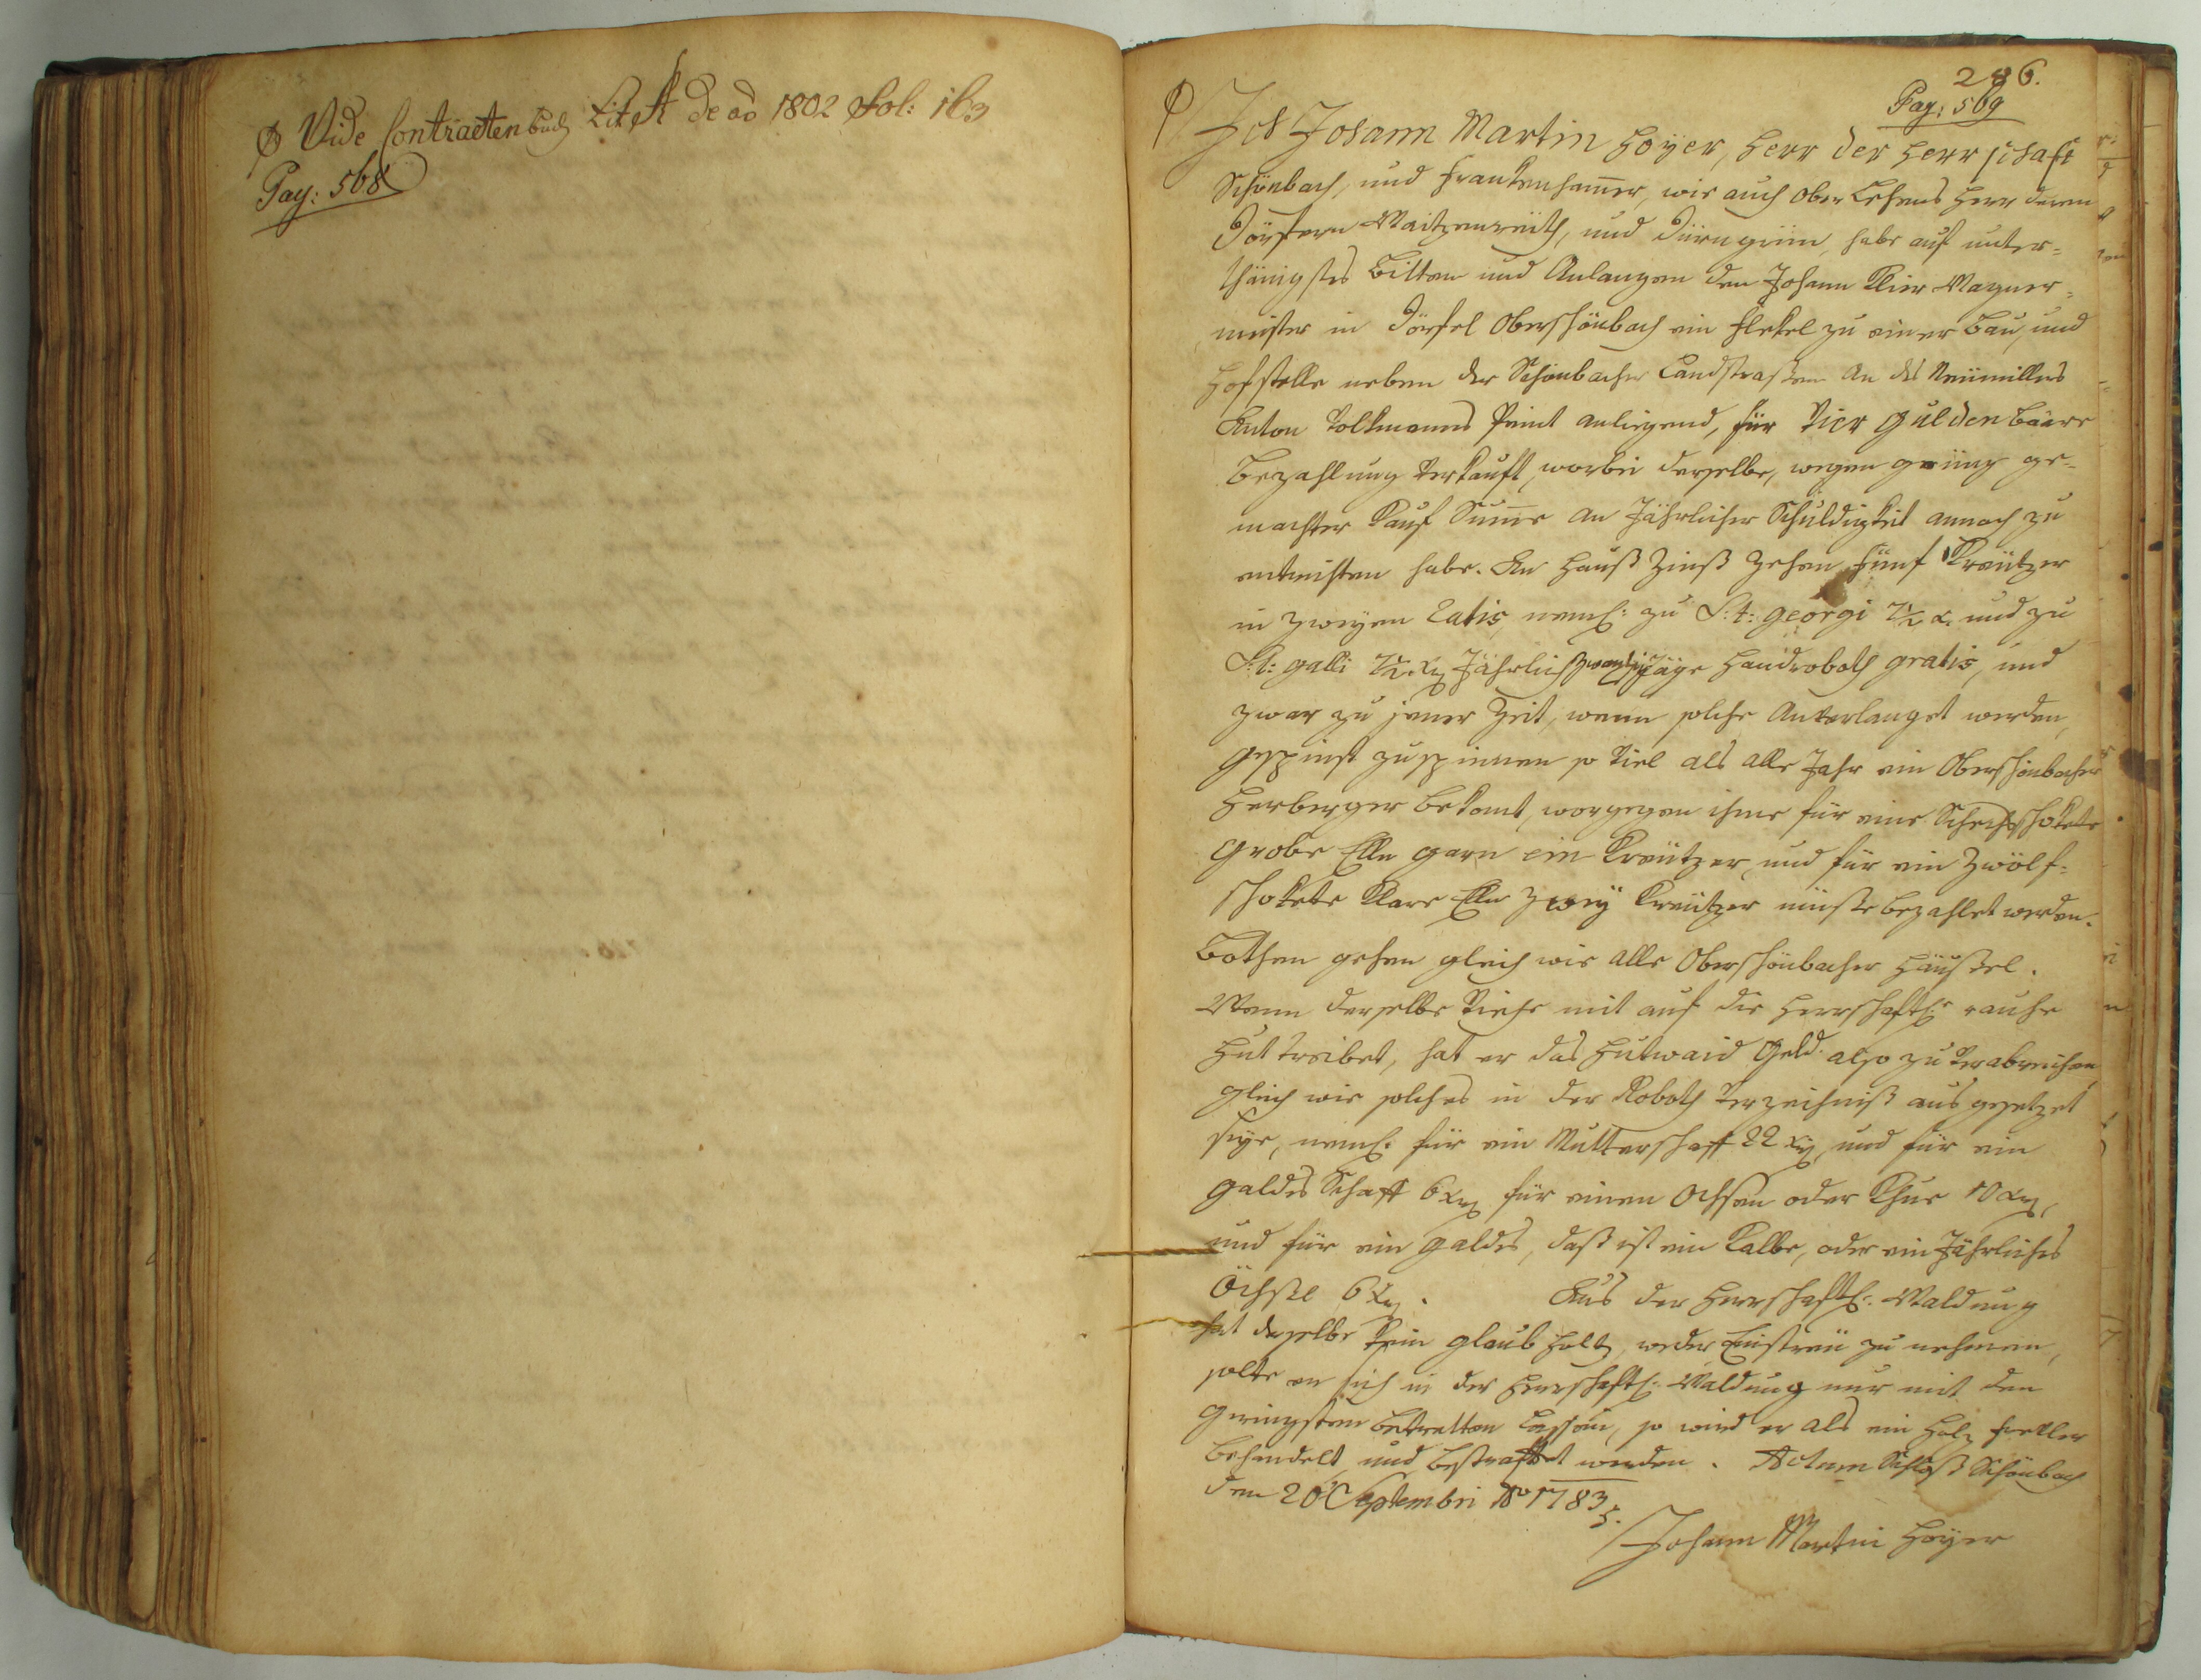 Vide Contracten buch Lit A de ao 1802 Fol: 163
Pag: 568
286.
Pag: 569
Ich Johann Martin Hoÿer, Herr der Herrschaft
Schönbach, und Frankenham̅er, wie auch Ober Lehens Herr deren
Dörfern Waitzenreüth, und Dürngrün, habe auf unter=
thänigstes Bitten und Anlangen den Johann Klier Wagner=
meister in Dörfel Oberschönbach ein Flekel zu einer Bau, und
Hofstelle neben der Schönbacher Landstrassen an des Neümillers
Anton Volkmanns Peint anliegend, für Vier Gulden baare
Bezahlung verkauft, worbei derselbe, wegen gering ge=
machter Kauf Sum̅e an Jährlicher Schuldigkeit annoch zu
entrichten habe. An Hauß Zinß Zehen fünf Kreützer
in zweyen Ratis, neml: zu S:t: Georgi 7½ x. und zu
S:t: Galli 7½ xr Jährlich zwantzig Täge Handroboth gratis, und
zwar zu jener Zeit, wenn solche Anverlanget werden,
Gespinst zu spinnen so viel als alle Jahr ein Oberschönbacher
Herberger bekomt, worgegen ihme für eine Sechsschokete
Grobe Elln garn ein Kreützer, und für ein Zwölf=
schokete klare Elln Zweÿ Kreützer müsse bezahlet werden.
Bothen gehen gleich wie alle Oberschönbacher Häußel.
Wenn derselbe Viehe mit auf die Herrschaftl: rauhe
Hut treibet, hat er das Hutwaid Geld also zu verabreichen,
gleich wie solches in der Roboth Verzeichniß ausgesetzet
seÿe, neml: für ein Mutterschaff 22 xr, und für ein
Galdes Schaff 6 xr für einen Ochsen oder Khue 10 xr,
und für ein Galdes, daß ist ein Kalbe, oder ein Jährliches
Öchßl 6 xr. Aus der Herrschaftl: Waldung
hat derselbe kein Glaub holtz, weder Einstreü zu nehmen,
solte er sich in der Herrschaftl: Waldung nur mit den
geringsten betretten lassen, so wird er als ein Holz frevler
behandelt, und bestraffet werden. Actum Schloß Schönbach
den 20t Septembri Ao 1783
Johann Martin Hoÿer